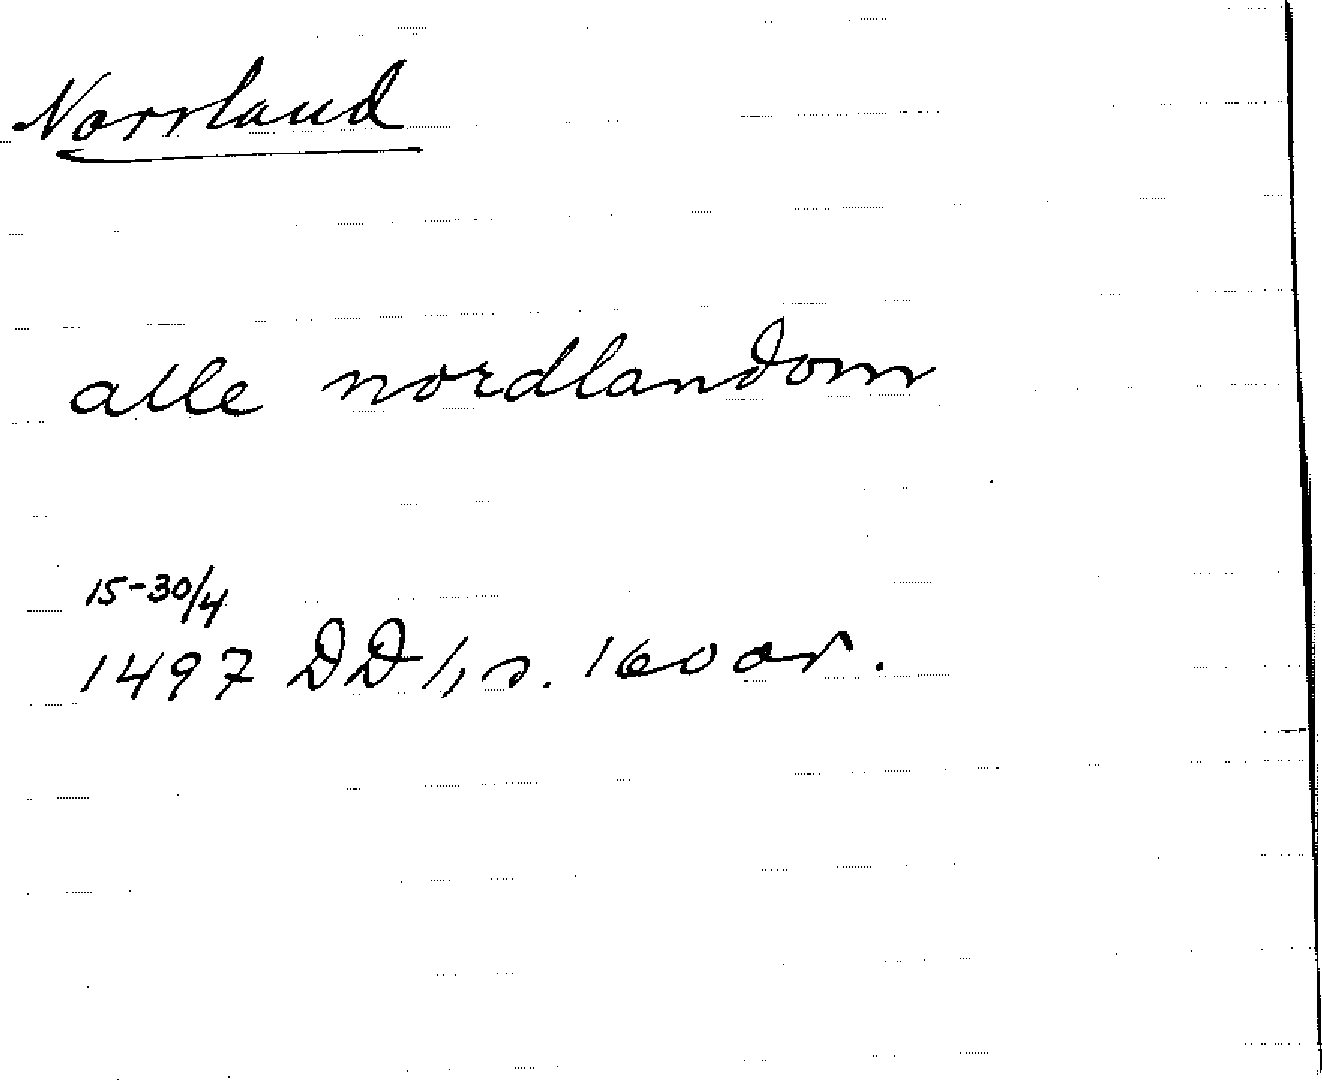 Norrland
alle nordlandom
15-30/4
1497 DD 1, s. 160 or.